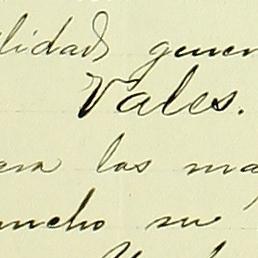 ilidad gener
Vales.
ara las ma
ancho su